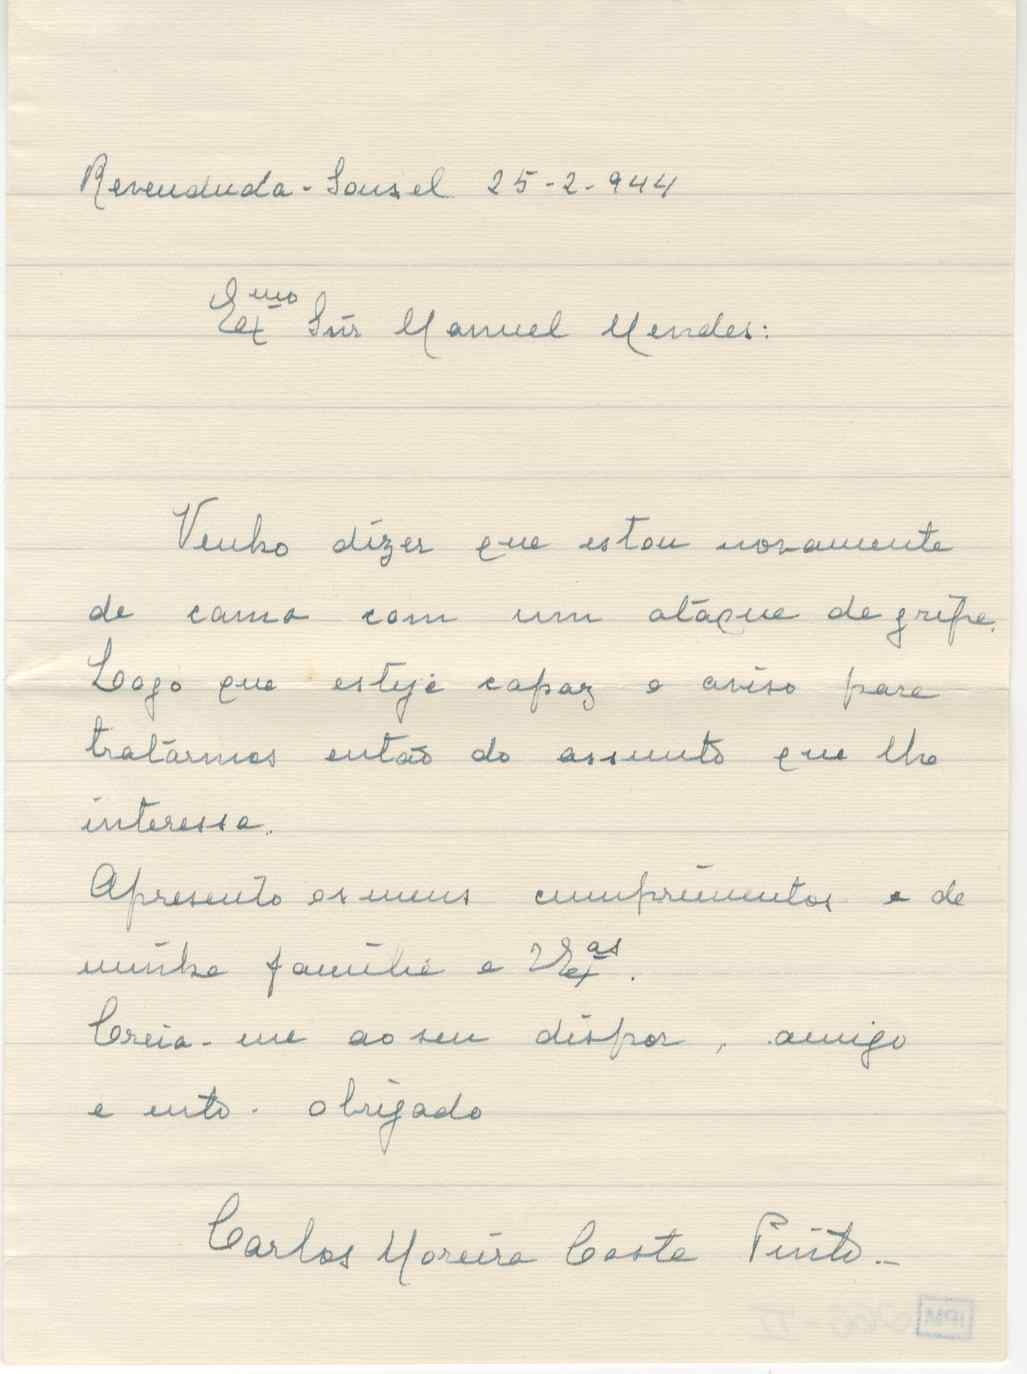 Revenduda - Sousel 25-2-944
Exmo Snr Manuel Mendes:
Venho dizer que estou novamente
de cama com um ataque de gripe.
Logo que esteje capaz o aviso para
tratármos então do assunto que lhe
interessa.
Apresento os meus cumprimentos e de
minha família a VExas.
Creia-me ao seu dispor, amigo
e mto. obrigado
Carlos Moreira Costa Pinto.-
IPM